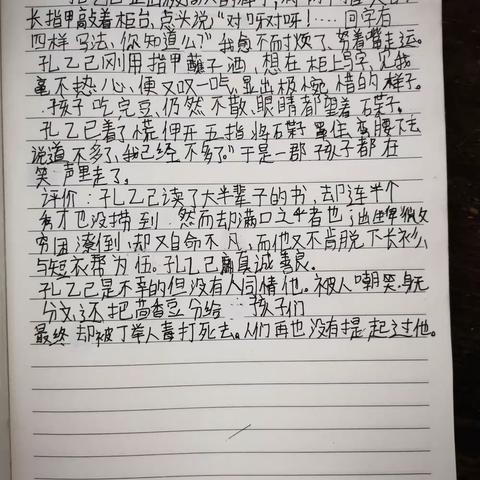 长指甲敲着柜台、点头说"对呀对呀！....回字有
四样写法、你知道么？"我愈不耐烦了、努着嘴走远。
孔乙己刚用指甲蘸了酒，想在柜上写字，见我
毫不热心、便又叹一口气，显出极惋惜的样子。
孩子吃完豆、仍然不散、眼睛都望着碟子。
孔乙己着了慌伸开五指将碟子罩住、弯腰下去
说道不多了、我已经不多了。"于是一群孩子都在
笑声里走了。
评价：孔乙己读了大半辈子的书、却连半个
秀才也没捞到．然而却满口之乎者也
穷困潦倒、却又自命不凡，而他又不肯脱下长衫
与短衣帮为伍。孔乙己真诚善良。
孔乙己是不幸的但没有人同情他。被人嘲笑．身无
分文、还把茴香豆分给孩子们
最终却被丁举人毒打死去。人们再也没有提起过他。